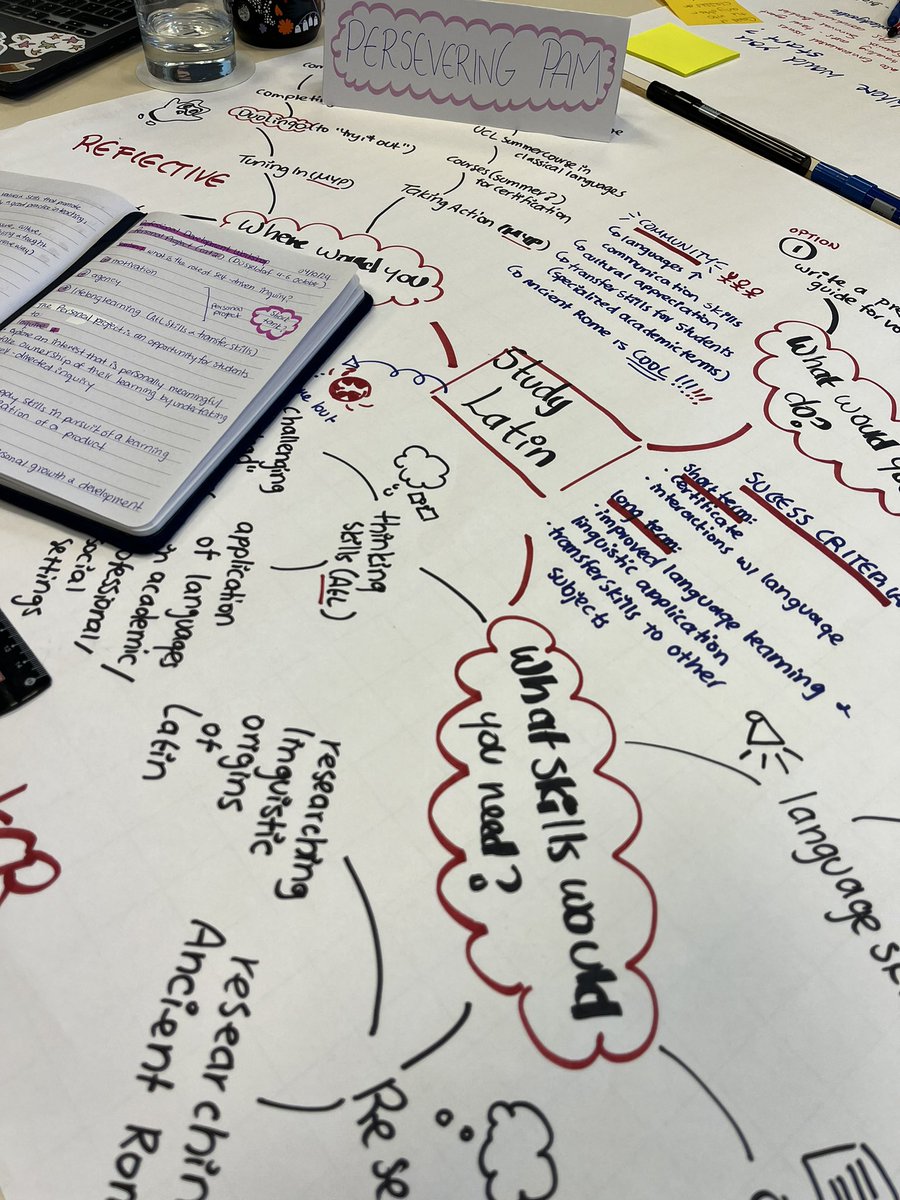 PERSEVERING PAM
REFLECTIVE
Duolingo (to "try it out")
Tuning In (MYP)
UCL summer course in
classical languages
courses (summer?)
for certification
Taking Action (MYP)
Where would you
COMMUNITY
languages ↑
communication skills
cultural appreciation
transfer skills for students
(specialized academic terms)
Ancient Rome is COOL !!!!!
OPTION
1
write a
guide for
What would you
do?
Study
Latin
SUCCESS CRITERIA
short term:
· certificate
· interactions w/ language
long term:
· improved language learning &
linguistic application
· transfer skills to other
subjects
04/10/24
what is the role of self-driven inquiry?
motivation
agency
lifelong learning (ATL skills & transfer skills)
personal
project
The Personal project is an opportunity for students
to
explore an interest that is personally meaningful
take ownership of their learning by undertaking
self-directed inquiry
apply skills in pursuit of a learning
creation of a product
personal growth & development
challenging
thinking
skills (ATL)
application
of languages
in academic/
professional/
social
settings
What skills would
you need?
language
researching
linguistic
origins
of
Latin
researchin
Ancient Rom
Rese